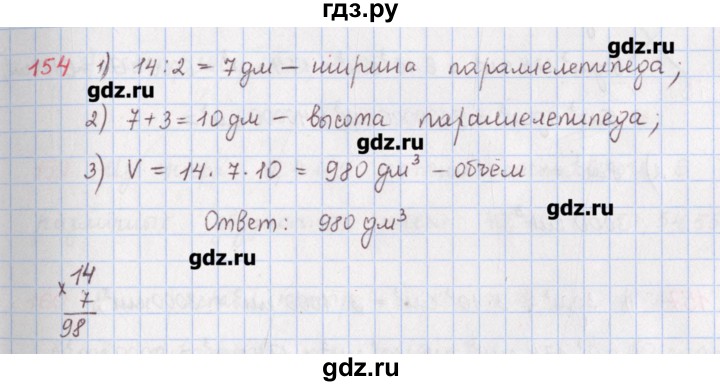 гдз.ру
gdz.ru
154 1) 14 : 2 = 7 дм – ширина параллелепипеда;
gdz.ru
2) 7 + 3 = 10 дм – высота параллелепипеда;
gdz.ru
3) V = 14 · 7 · 10 = 980 дм³ – объём
gdz.ru
Ответ: 980 дм³
gdz.ru
× 14
7
98
gdz.ru